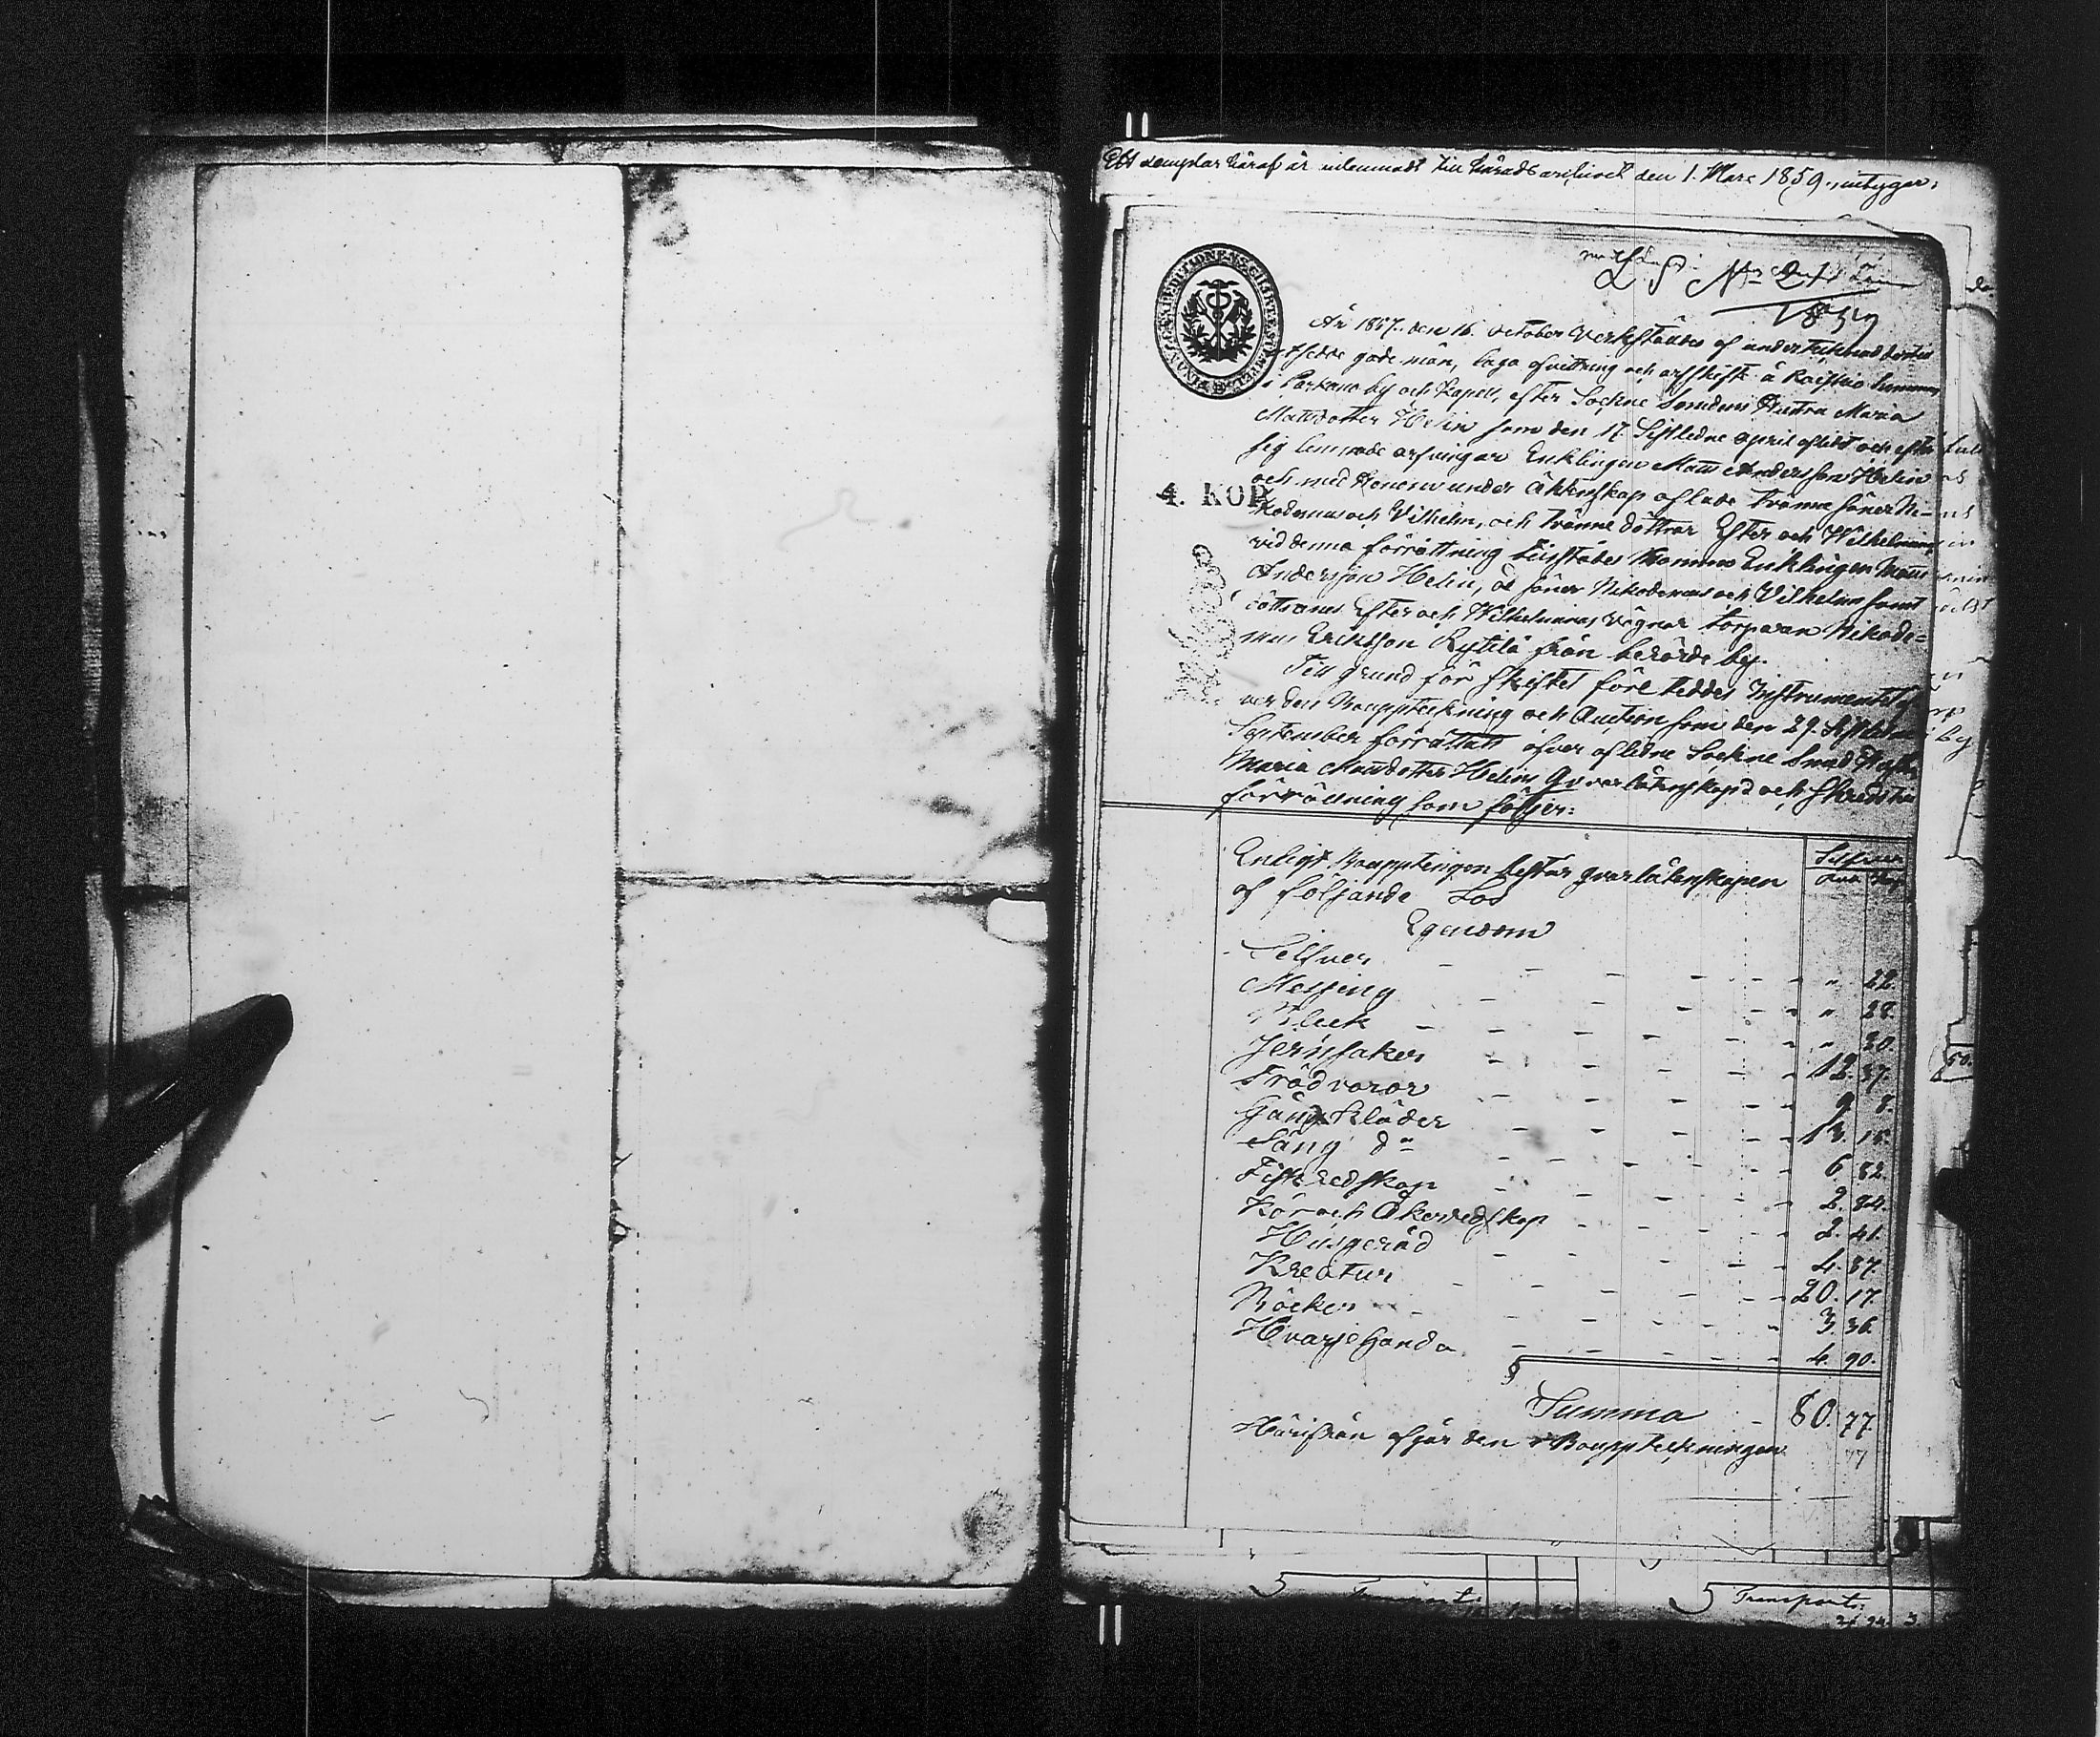 Ett exemplar häraf är inlemnadt till häradsarchivet den 1. Mars 1859., intygar,
No 21
1859
4. KOP.
År 1857. den 16. October verkställdes af undertecknad dertill
utsedde gode män, laga afvittring och arfskifte å
i Parkano by och Kapell, efter Sockne Smedens Hustru Maria
Mattsdotter Helin som den 17. Sistledne April aflidit och efter
sig lemnade arfvingar Enklingen Matts Andersson Helin
och med honom under äktenskap aflade tvänne söner Ni-
kodemus och Vilhelm, och tvänne döttrar Ester och Wilhelmina
vid denna förrättning tillstädes kommo Enklingen Matts
Andersson Helin, de söner Nikodemus och Vilhelm samt å
döttrarnes Ester och Wilhelminas vägnar torparen Nikode=
mus Eriksson Kytilä från berörde by.
Till grund för skiftet företeddes Instrumentet öf
ver den Bouppteckning och Auction som den 29. Sistledne
September förrättats öfver aflidne Sockne Smed Hustrun
Maria Mattsdotter Helins Qvarlåtenskap och skreds till
förrättning som följer:
Enligt Bouppteckningen består qvarlåtenskapen
af följande Lös
Silfver
Egendom
Silfver - - - - " 22.
Messing - - - - " 28.
Bleck - - - - " 30.
Jernsaker - - - - 12. 37.
Trädvaror - - - - 9 8.
Gångkläder - - - - 13. 15.
Säng do - - - - 6 82.
Fiskredskap - - - - 2. 84.
Kör och Åkerredskap - - - - 2. 41.
Husgeråd - - - - 4. 87.
Kreatur - - - - 20. 17.
Böcker - - - - 3. 36.
Hvarjehanda - - - - 4. 90.
Summa - 80. 77.
Härifrån afgår den i Bouppteckningen
77
Transport:
Transport: